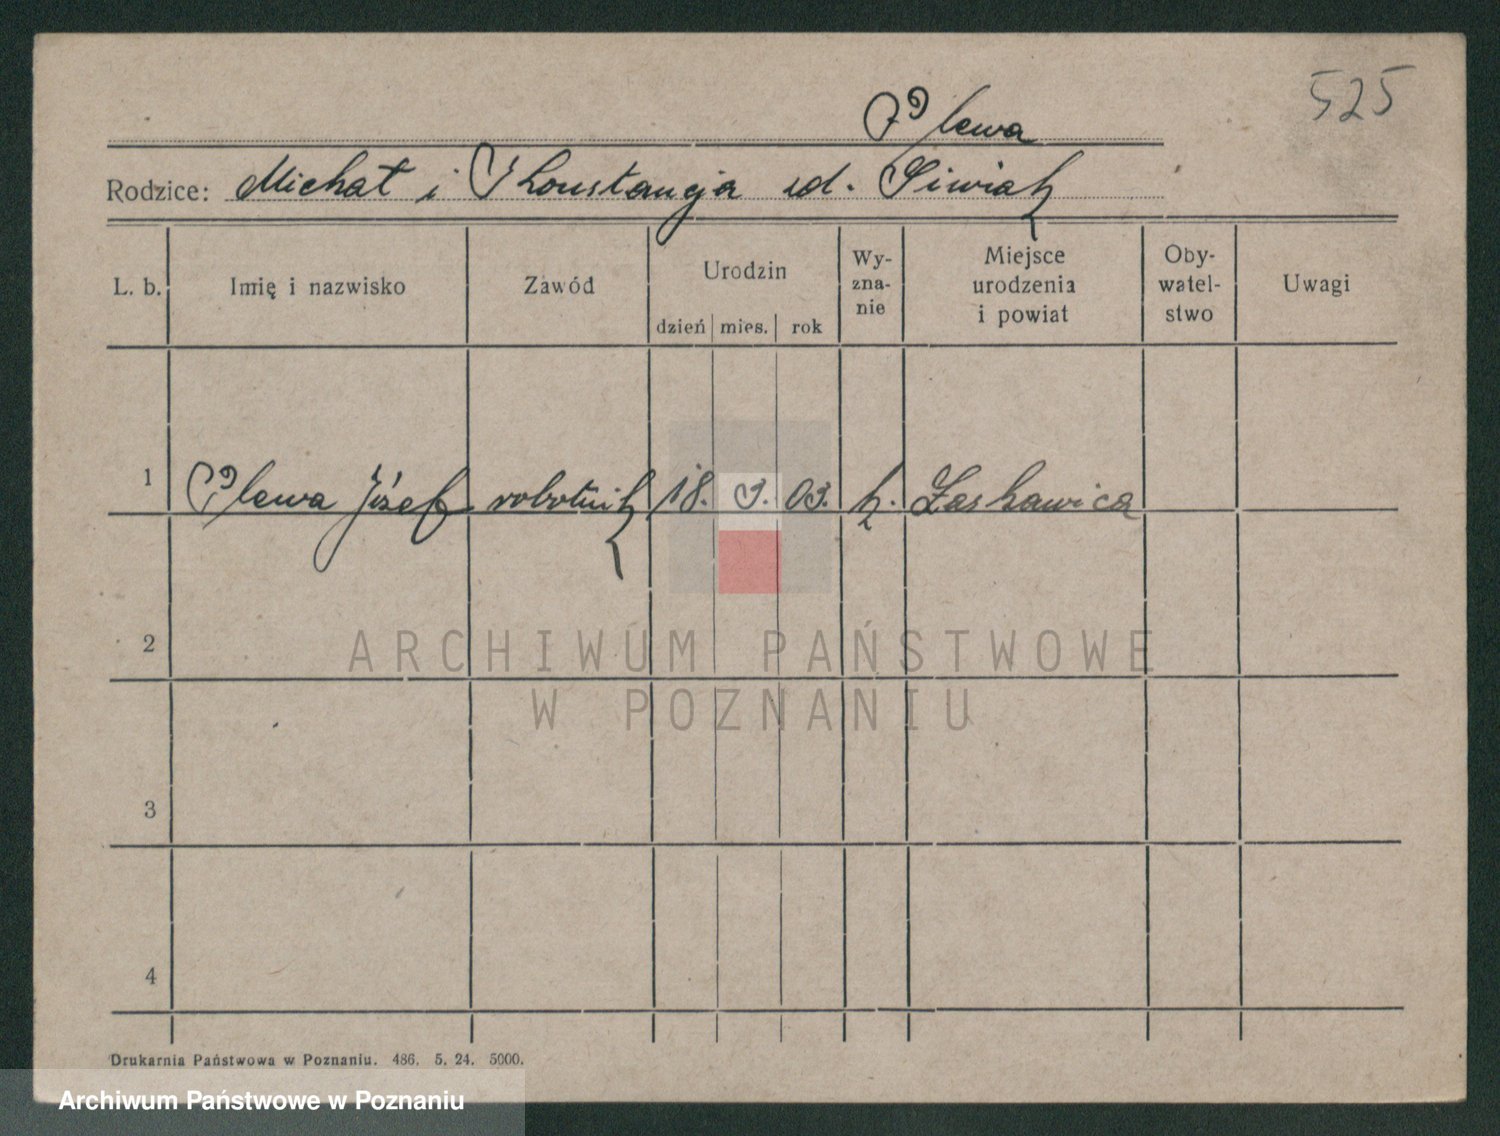 525
Plewa
Rodzice: Michał i Konstancja zd. Siwiak
L. b. Imię i nazwisko Zawód Urodzin dzień mies. rok Wy-zna-nie Miejsce urodzenia i powiat Oby-watel-stwo Uwagi
1 Plewa Józef robotnik 18. 3. 03. k. Laskawica
2
3
4
ARCHIWUM PAŃSTWOWE
W POZNANIU
Drukarnia Państwowa w Poznaniu. 486. 5. 24. 5000.
Archiwum Państwowe w Poznaniu